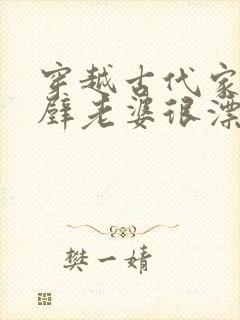 穿越古代家
壁老婆很漂
樊一婧